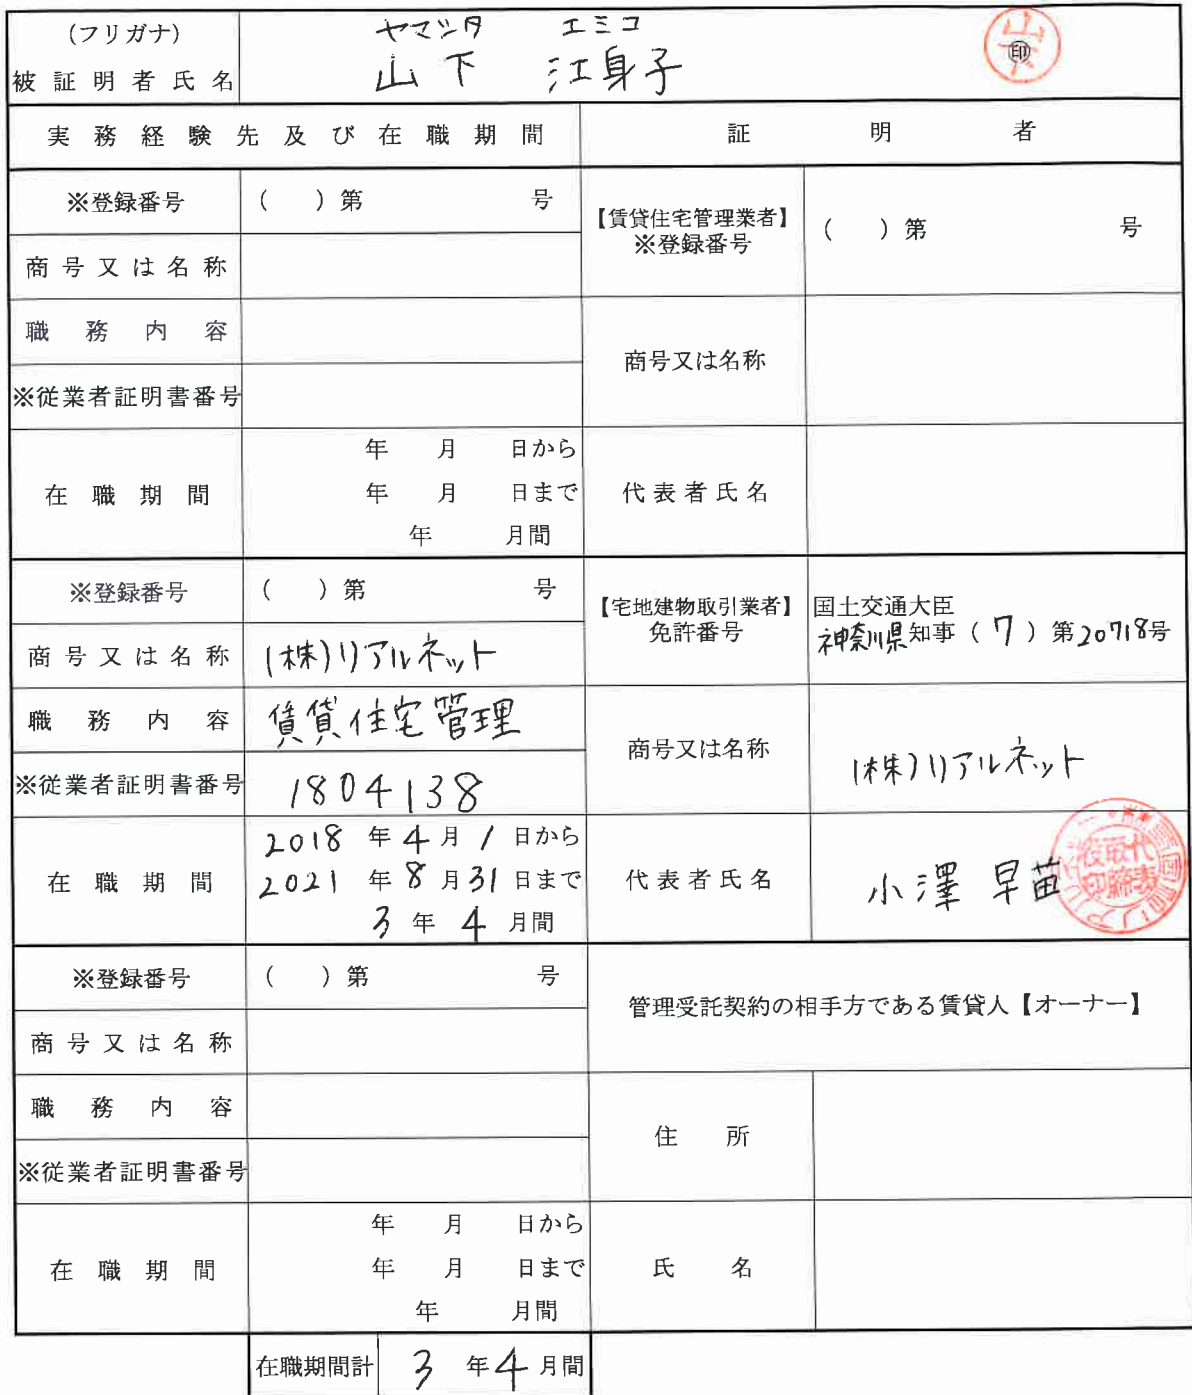 (フリガナ) ヤマシタ エミコ
被証明者氏名 山下 江身子 ㊞
実務経験先及び在職期間 証明者
※登録番号 ( )第 号
【賃貸住宅管理業者】
※登録番号 ( )第 号
商号又は名称
職務内容
商号又は名称
※従業者証明書番号
在職期間
年 月 日から
年 月 日まで
年 月間
代表者氏名
※登録番号 ( )第 号
【宅地建物取引業者】
免許番号
国土交通大臣
神奈川県知事(7)第20718号
商号又は名称 (株)リアルネット
職務内容 賃貸住宅管理
商号又は名称 (株)リアルネット
※従業者証明書番号 1804138
在職期間
2018年4月1日から
2021年8月31日まで
3年4月間
代表者氏名 小澤 早苗
※登録番号 ( )第 号
管理受託契約の相手方である賃貸人【オーナー】
商号又は名称
職務内容
住所
※従業者証明書番号
在職期間
年 月 日から
年 月 日まで
年 月間
氏名
在職期間計 3年4月間